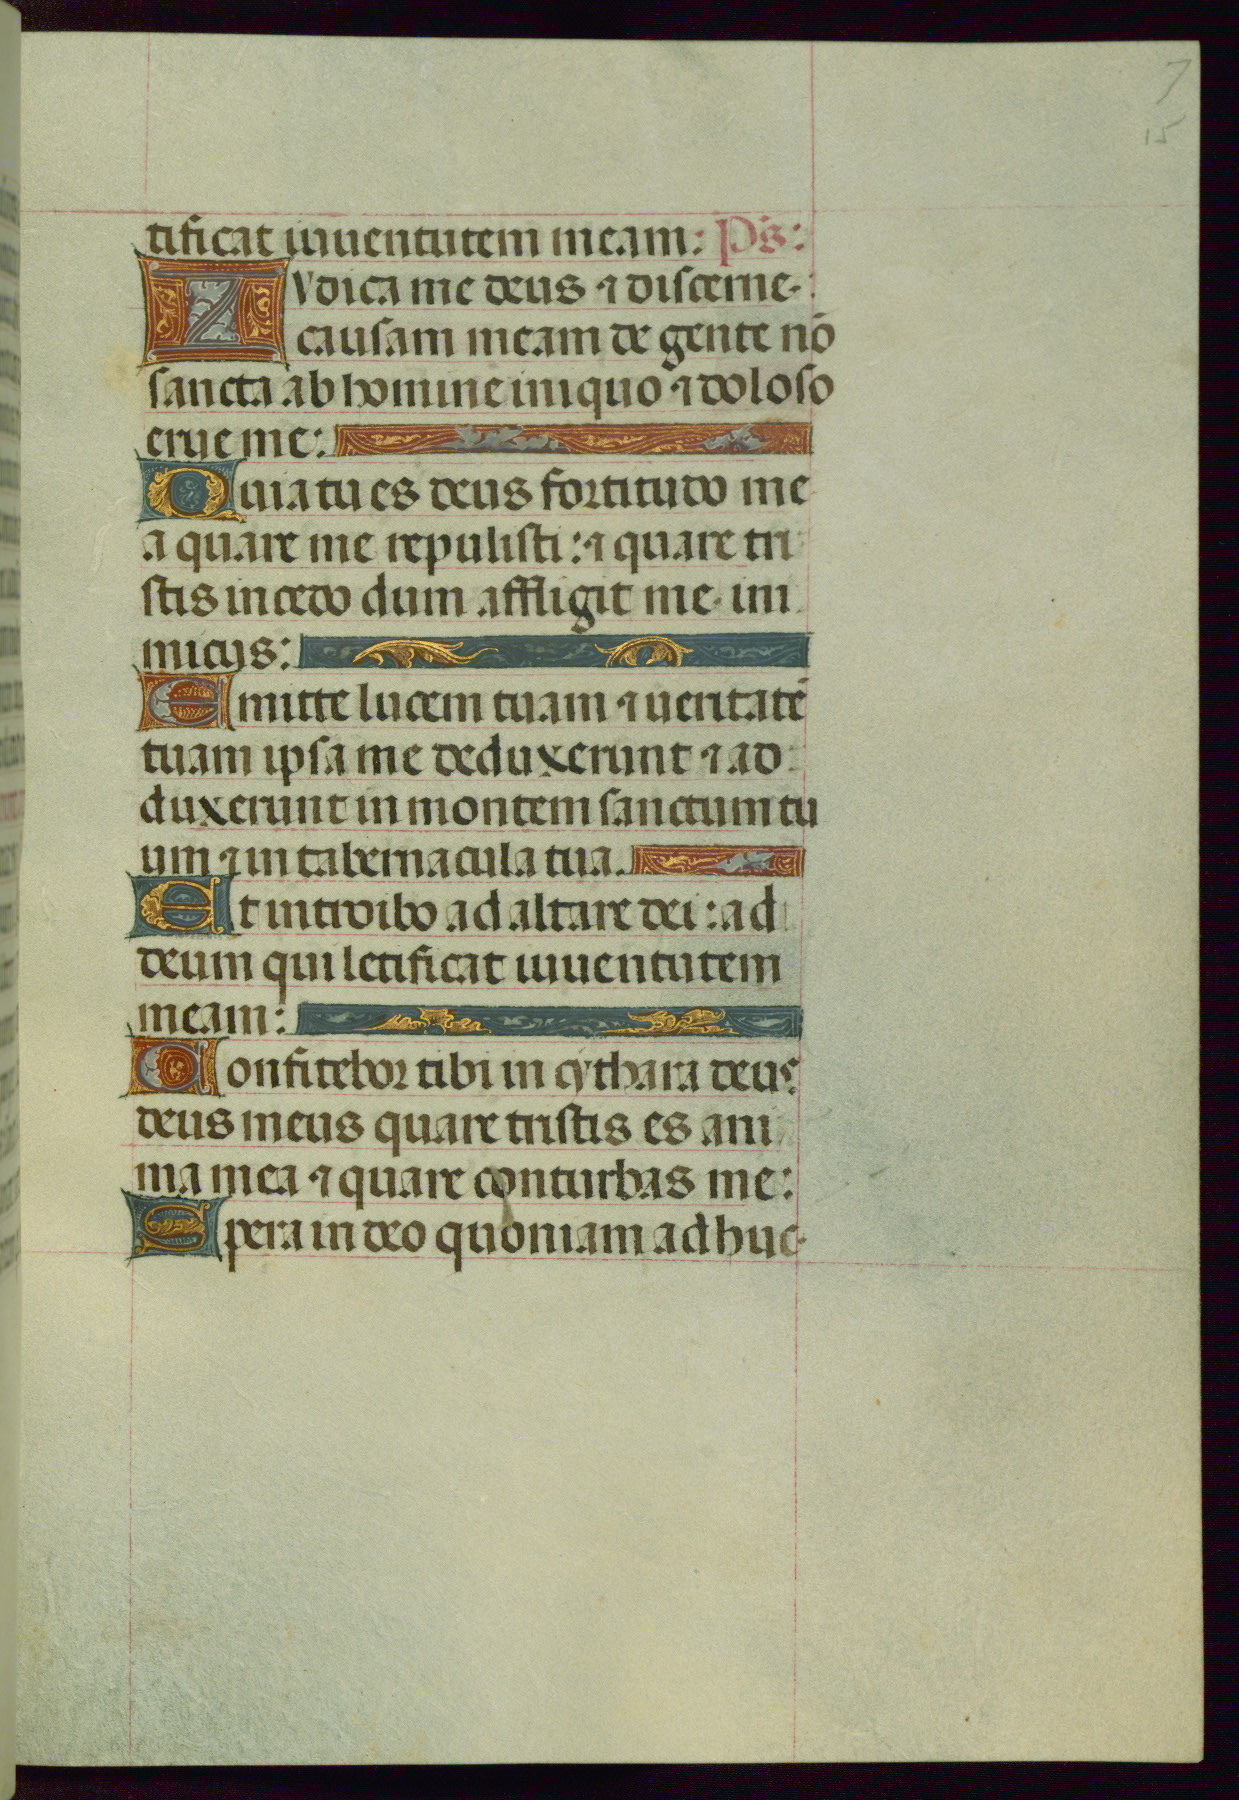 7
15
tificat iuuentutem meam: Ps:
IVdica me deus ⁊ discerne
causam meam de gente nō
sancta ab homine iniquo ⁊ doloso
erue me:
Quia tu es deus fortitudo me
a quare me repulisti: ⁊ quare tri
stis incedo dum affligit me ini
micus:
Emitte lucem tuam ⁊ ueritatē
tuam ipsa me deduxerunt ⁊ ad
duxerunt in montem sanctum tu
um ⁊ in tabernacula tua.
Et introibo ad altare dei: ad
deum qui letificat iuuentutem
meam:
Confitebor tibi in cythara deus
deus meus quare tristis es ani
ma mea ⁊ quare conturbas me:
Spera in deo quoniam adhuc